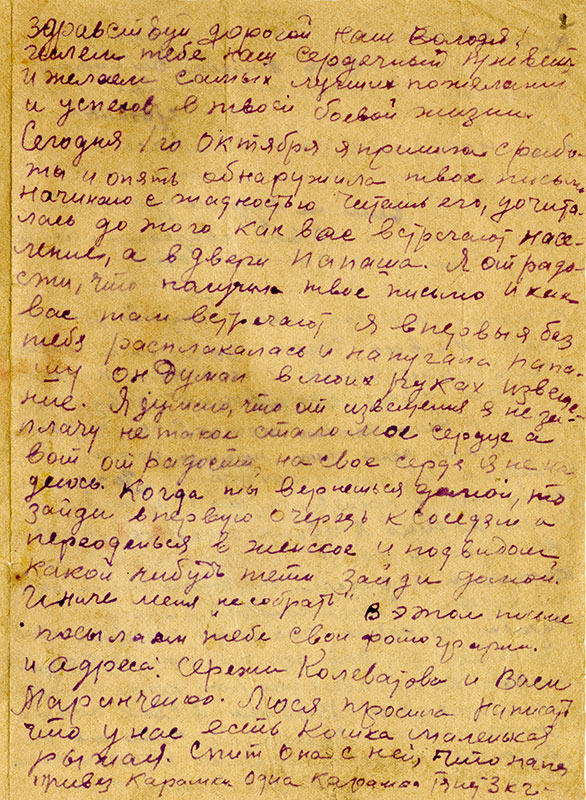 Здравствуй дорогой наш Володя!
Шлем тебе наш сердечный привет
и желаем самых лучших пожеланий
и успехов в твоей боевой жизни.
Сегодня 1го октября я пришла с рабо-
ты и опять обнаружила твое письмо
начинаю с жадностью читать его, дочита-
лась до того как вас встречают насе-
ление, а в двери папаша. Я от радо-
сти, что получила твое письмо и как
вас там встречают я впервыя без
тебя расплакалась и напугала папа-
шу он думал в моих руках извеще-
ние. Я думаю, что от извещения я не за-
плачу не такое стало мое сердце а
вот от радости, на свое сердце я не на-
деюсь. Когда ты вернешься домой, то
зайди в первую очередь к соседям а
переоденься в женское и подвидом
какой нибудь тети зайди домой.
Иначе меня "не собрать" в этом письме
посылаем тебе свои фотографии.
и адреса: Сережи Колеватова и Васи
Маринченко. Люся просила написать
что у нас есть кошка маленькая
рыжая. Спит она с ней, что папа
привез карамки одна карамка 3 кг.